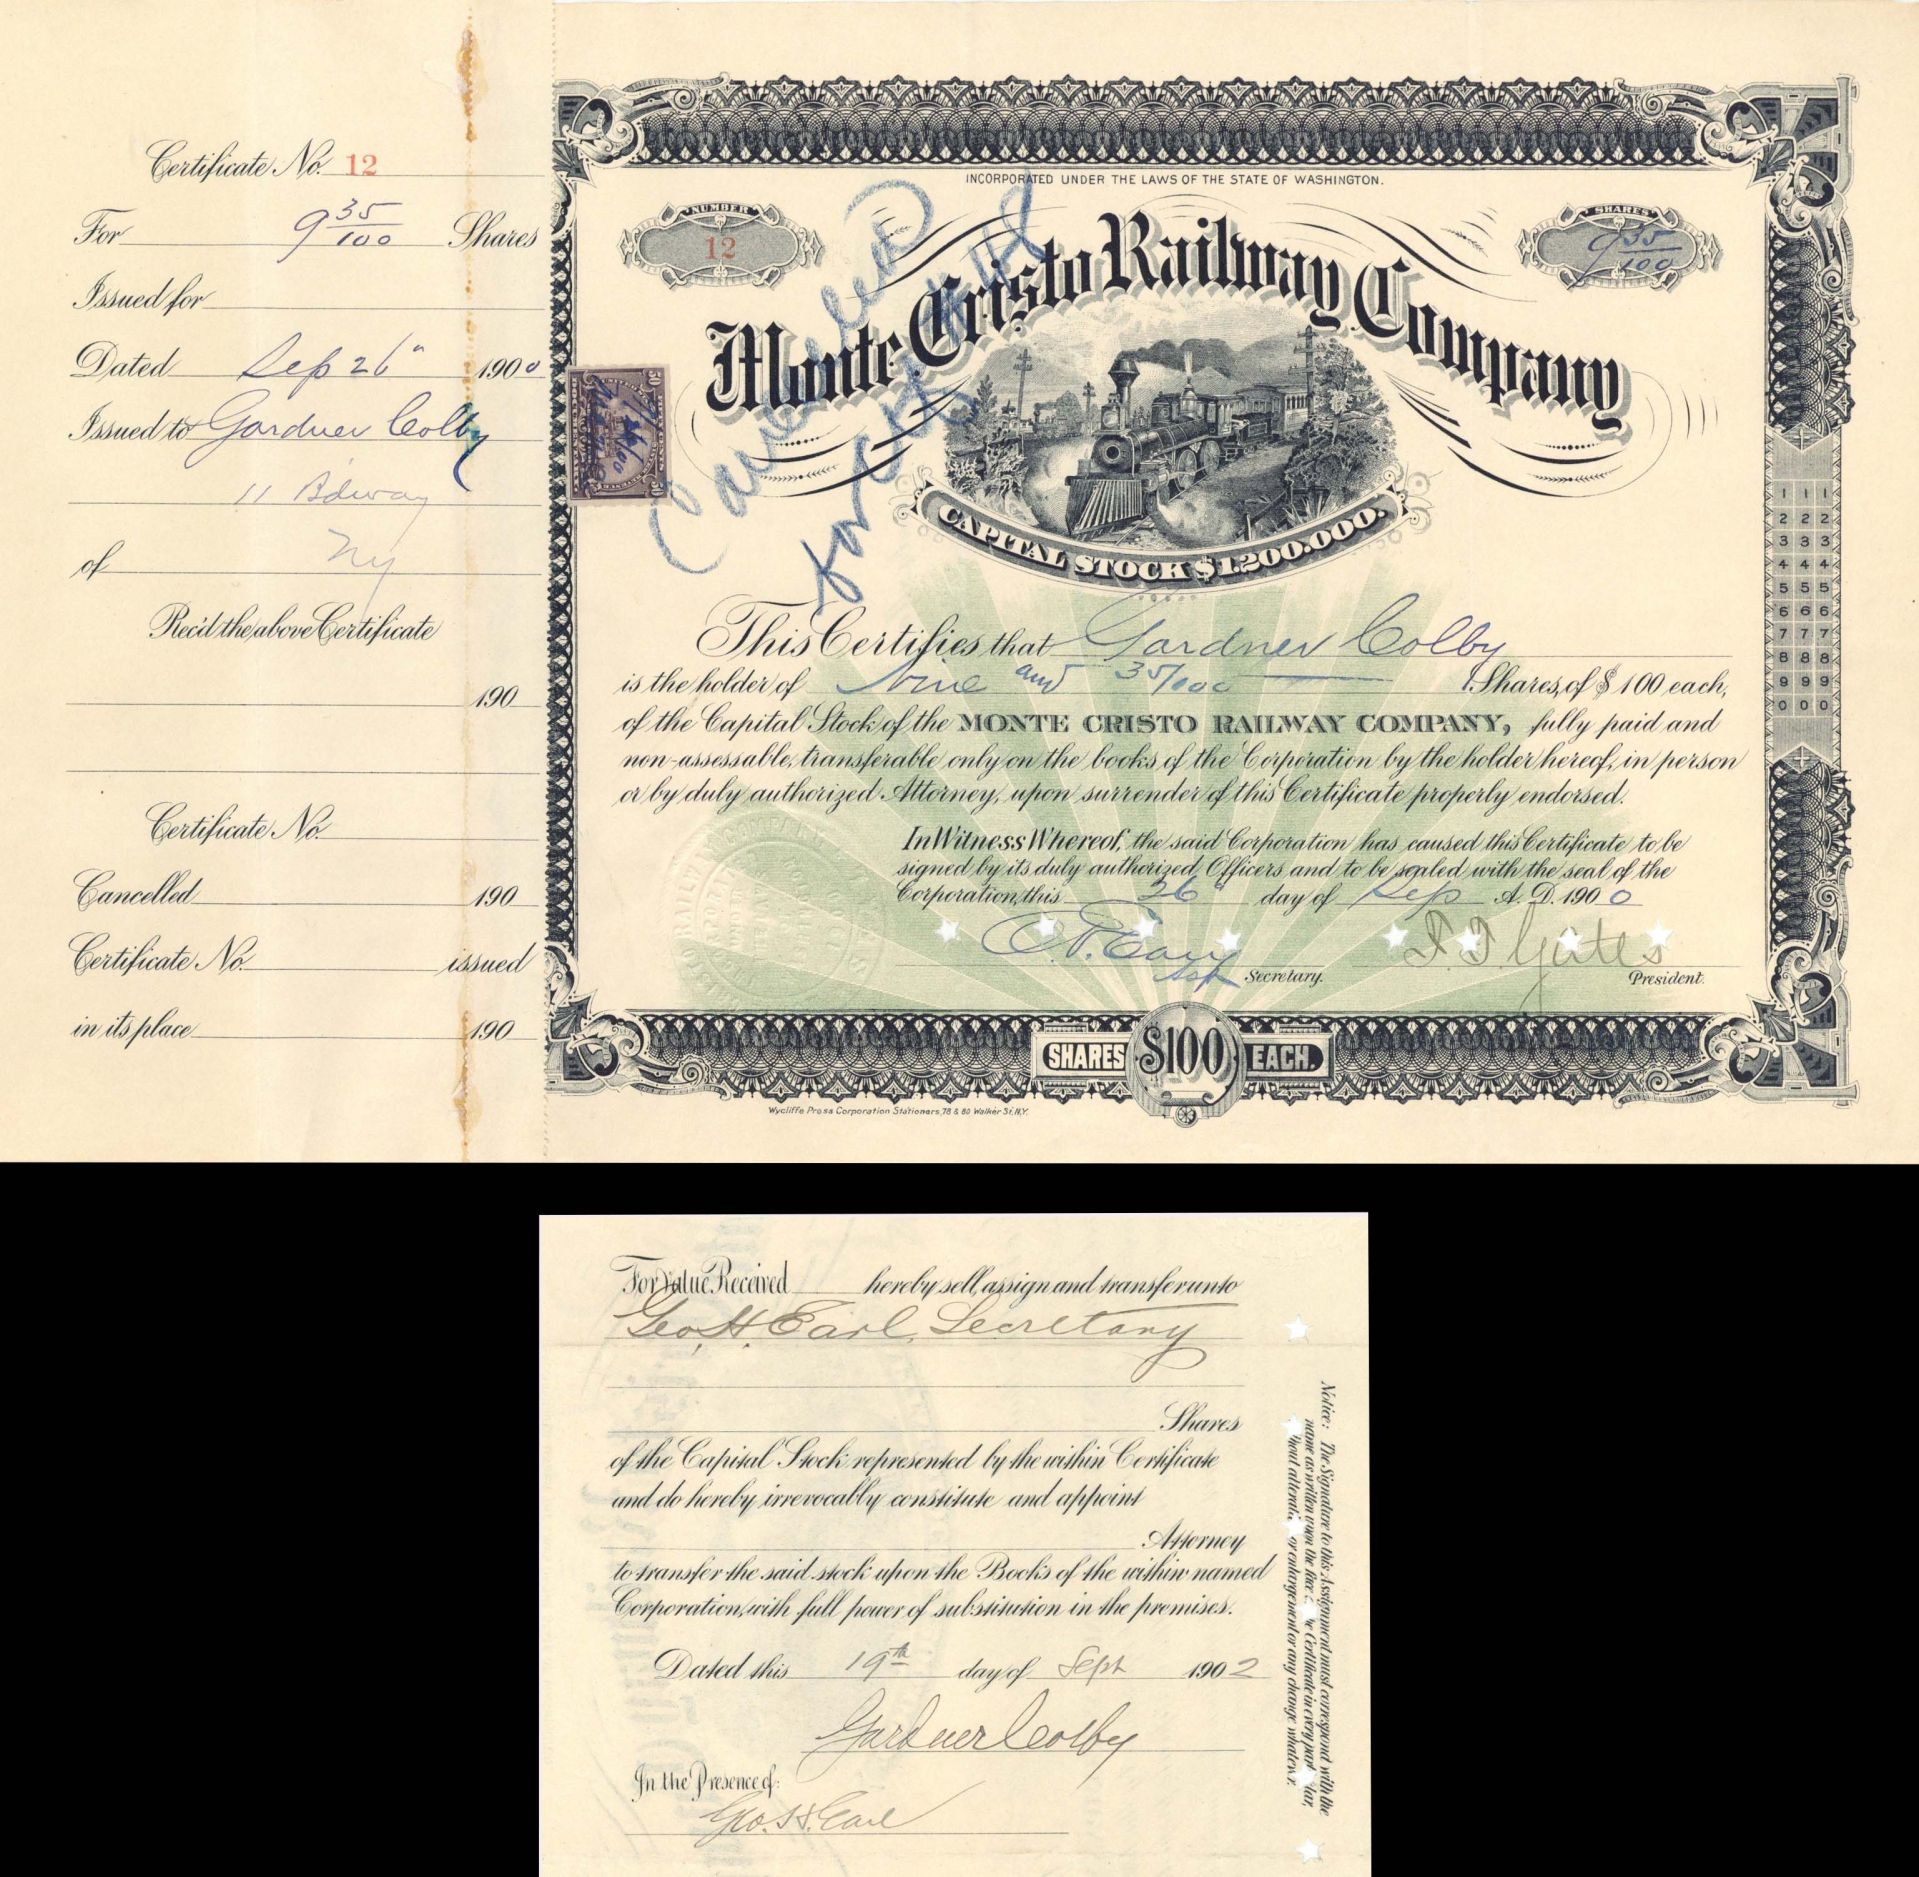 Certificate No. 12
For 9 35/100 Shares
Issued for
Dated Sep 26" 1900
Issued to Gardner Colby
11 Bdway
of NY
Rec'd the above Certificate
190
Certificate No.
Cancelled 190
Certificate No. issued
in its place 190
INCORPORATED UNDER THE LAWS OF THE STATE OF WASHINGTON.
NUMBER
12
SHARES
9 35/100
Monte Cristo Railway Company
Cancelled
for
50
50
CAPITAL STOCK $1,200,000.
This Certifies that Gardner Colby
is the holder of Nine and 35/100 Shares, of $100 each,
of the Capital Stock of the MONTE CRISTO RAILWAY COMPANY, fully paid and
non-assessable, transferable only on the books of the Corporation by the holder hereof, in person
or by duly authorized Attorney, upon surrender of this Certificate properly endorsed.
In Witness Whereof, the said Corporation has caused this Certificate to be
signed by its duly authorized Officers and to be sealed with the seal of the
Corporation, this 26" day of Sep A.D. 1900
Secretary.
F. T. Gates
President.
1 1 1
2 2 2
3 3 3
4 4 4
5 5 5
6 6 6
7 7 7
8 8 8
9 9 9
0 0 0
SHARES $100 EACH.
Wycliffe Press Corporation Stationers, 78 & 80 Walker St. N.Y.
For Value Received hereby sell, assign and transfer unto
Geo. H. Earl, Secretary
Shares
of the Capital Stock represented by the within Certificate
and do hereby irrevocably constitute and appoint
Attorney
to transfer the said stock upon the Books of the within named
Corporation, with full power of substitution in the premises.
Dated this 19th day of Sept 1902
Gardner Colby
In the Presence of:
Geo. H. Earl
Notice: The Signature to this Assignment must correspond with the
name as written upon the face the Certificate in every
or enlargement or any change whatever.